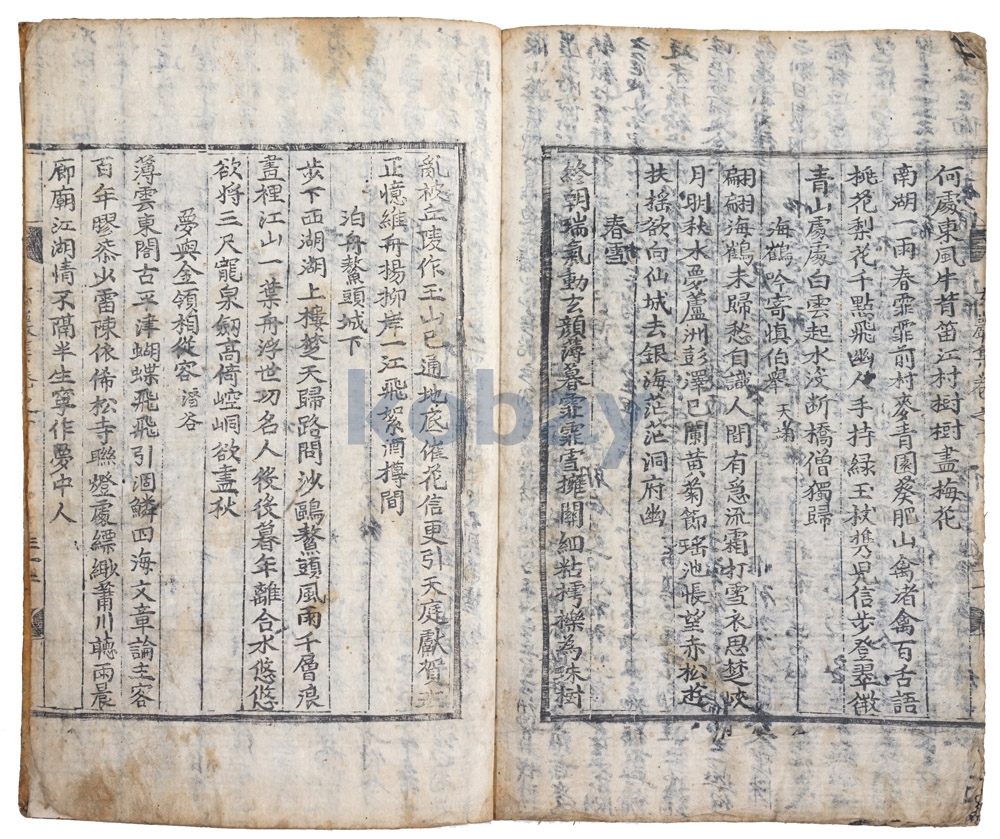 何處東風牛背笛江村樹樹盡梅花
南湖一雨春霏霏前村麥青園葵肥山禽渚禽百舌語
桃花梨花千點飛幽人手持綠玉杖携兒信步登翠微
青山處處白雲起水沒断橋僧獨歸
海鶴吟寄愼伯擧
翩翩海鶴未歸愁自識人間有急流霜打雪衣思楚峽
月明秋水夢蘆洲彭澤已闌黃菊節瑤池悵望赤松遊
扶搖欲向仙城去銀海茫茫洞府幽
春雪
終朝瑞氣動玄顔薄暮霏霏雪擁關細粘樗櫟為珠樹
亂被丘陵作玉山已通地底催花信更引天庭獻賀
正憶維舟楊柳岸一江飛絮酒樽間
泊舟鰲頭城下
步下西湖湖上樓楚天歸路問沙鷗鰲頭風雨千層浪
畫裡江山一葉舟浮世功名人後後暮年離合水悠悠
欲將三尺龍泉劒高倚崆峒欲盡秋
夢與金領相從容 潛谷
薄雲東閣古平津蝴蝶飛飛引涸鱗四海文章論主客
百年膠柒少雷陳依俙松寺聯燈處縹緲蕭川聽雨晨
廊廟江湖情不隔半生寧作夢中人
kobay